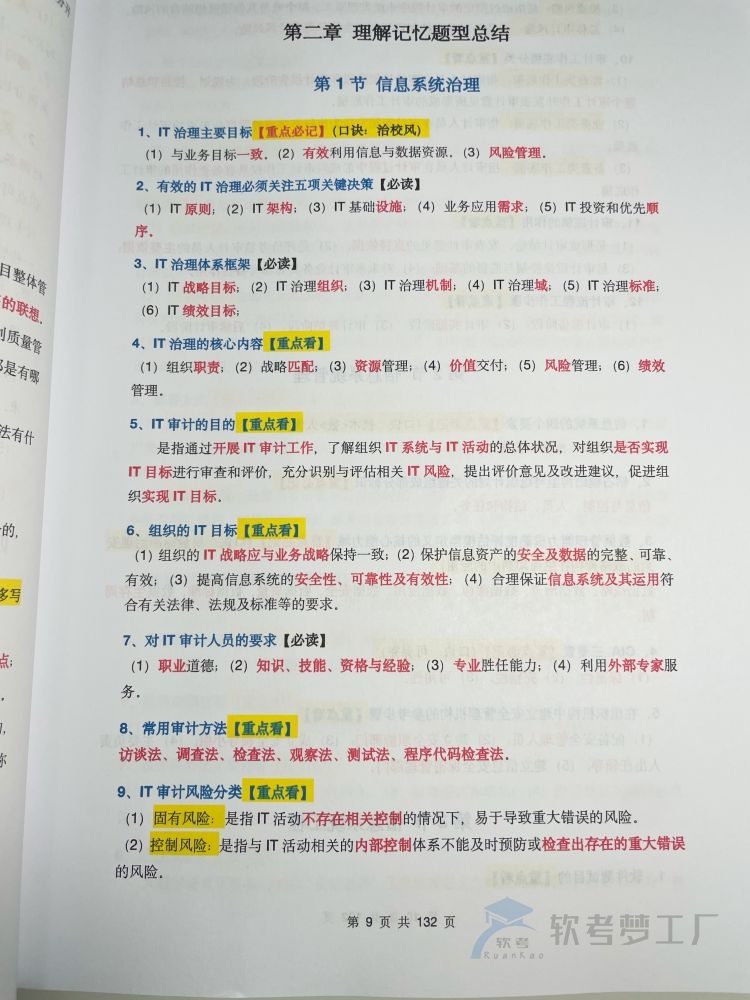 第二章 理解记忆题型总结
第 1 节 信息系统治理
1、IT 治理主要目标【重点必记】(口诀：治校风)
（1）与业务目标一致.（2）有效利用信息与数据资源.（3）风险管理.
2、有效的 IT 治理必须关注五项关键决策【必读】
（1）IT 原则;（2）IT 架构;（3）IT 基础设施;（4）业务应用需求;（5）IT 投资和优先顺
序.
3、IT 治理体系框架【必读】
（1）IT 战略目标;（2）IT 治理组织;（3）IT 治理机制;（4）IT 治理域;（5）IT 治理标准;
（6）IT 绩效目标;
4、IT 治理的核心内容【重点看】
（1）组织职责;（2）战略匹配;（3）资源管理;（4）价值交付;（5）风险管理;（6）绩效
管理.
5、IT 审计的目的【重点看】
是指通过开展 IT 审计工作，了解组织 IT 系统与 IT 活动的总体状况，对组织是否实现
IT 目标进行审查和评价，充分识别与评估相关 IT 风险，提出评价意见及改进建议，促进组
织实现 IT 目标.
6、组织的 IT 目标【重点看】
（1）组织的 IT 战略应与业务战略保持一致;（2）保护信息资产的安全及数据的完整、可靠、
有效;（3）提高信息系统的安全性、可靠性及有效性;（4）合理保证信息系统及其运用符
合有关法律、法规及标准等的要求.
7、对 IT 审计人员的要求【必读】
（1）职业道德;（2）知识、技能、资格与经验;（3）专业胜任能力;（4）利用外部专家服
务.
8、常用审计方法【重点看】
访谈法、调查法、检查法、观察法、测试法、程序代码检查法.
9、IT 审计风险分类【重点看】
（1）固有风险：是指 IT 活动不存在相关控制的情况下，易于导致重大错误的风险.
（2）控制风险：是指与 IT 活动相关的内部控制体系不能及时预防或检查出存在的重大错误
的风险.
第 9 页 共 132 页
目整体管
的联想.
质量管
是有哪
法有什
的,
多写
点;
软考
RuanKao
软考梦工厂